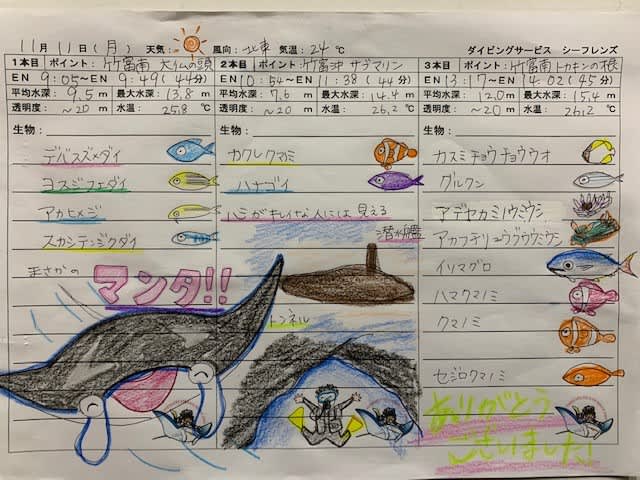 11月11日(月) 天気: 風向: 北東 気温: 24℃ ダイビングサービス シーフレンズ
1本目 ポイント: 竹富南 大仏の頭
EN 9:05～EN 9:49(44分)
平均水深: 9.5m 最大水深: 13.8m
透明度: ～20m 水温: 25.8℃
生物:
デバスズメダイ
ヨスジフエダイ
アカヒメジ
スカシテンジクダイ
まさかの
マンタ!!
2本目 ポイント: 竹富沖 サブマリン
EN 10:54～EN 11:38(44分)
平均水深: 7.6m 最大水深: 14.4m
透明度: ～20m 水温: 26.2℃
生物:
カクレクマノミ
ハナゴイ
心がキレイな人には見える
潜水艦
トンネル
3本目 ポイント: 竹富南 トカキンの根
EN 13:17～EN 14:02(45分)
平均水深: 12.0m 最大水深: 15.4m
透明度: ～20m 水温: 26.2℃
生物:
カスミチョウチョウウオ
グルクン
アデヤカミノウミウシ
アカフチリュウグウウミウシ
イソマグロ
ハマクマノミ
クマノミ
セジロクマノミ
ありがとう
ございました!